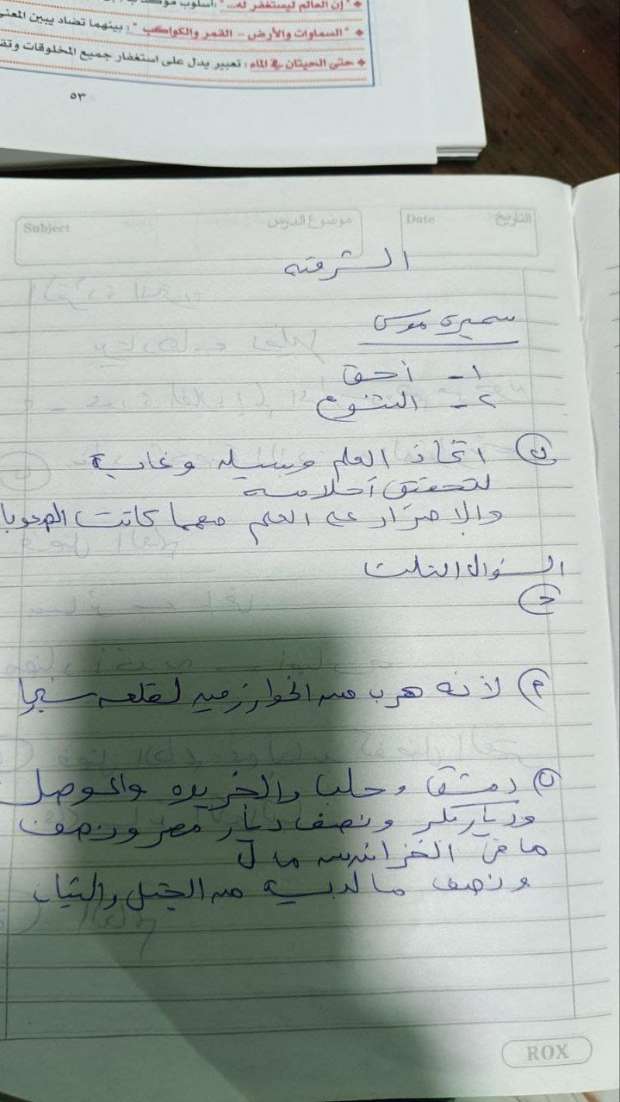 "إن العالم ليستغفر له..." : أسلوب
"السماوات والأرض - القمر والكواكب" : بينهما تضاد يبين المعنى
حتى الحيتان في الماء : تعبير يدل على استغفار جميع المخلوقات
٥٣
Subject موضوع الدرس
Date التاريخ
الشرقيه
سميرة موسى
١- أحق
٢- التنوع
اتخاذ العلم وسيله وغاية
لتحقيق أحلامه
والاصرار علي العلم مهما كانت الصعوبا
السؤال التلت
ج
م لأنه هرب من الخوارزميه لقلعه سنجا
ن دمشق وحلب والجزيره والموصل
وديار بكر ونصف ديار مصر ونصف
ما في الخزائن من مال
ونصف ما لديه من الخيل والثياب
ROX